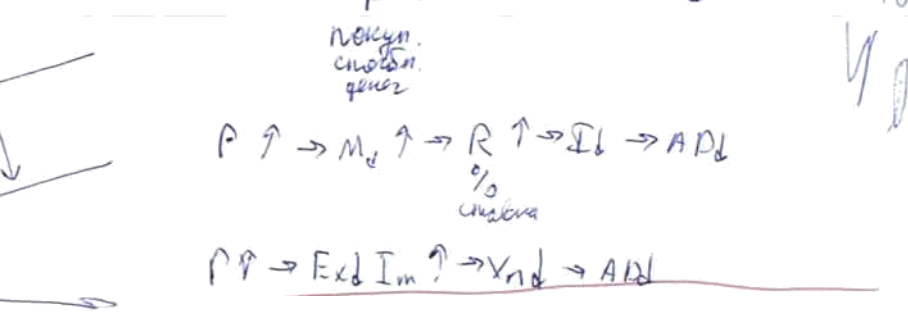 покуп.
способн.
денег
P ↑ → Md ↑ → R ↑ → I↓ → AD↓
%
ставка
P↑ → Ex↓ Im ↑ → Xn↓ → AD↓